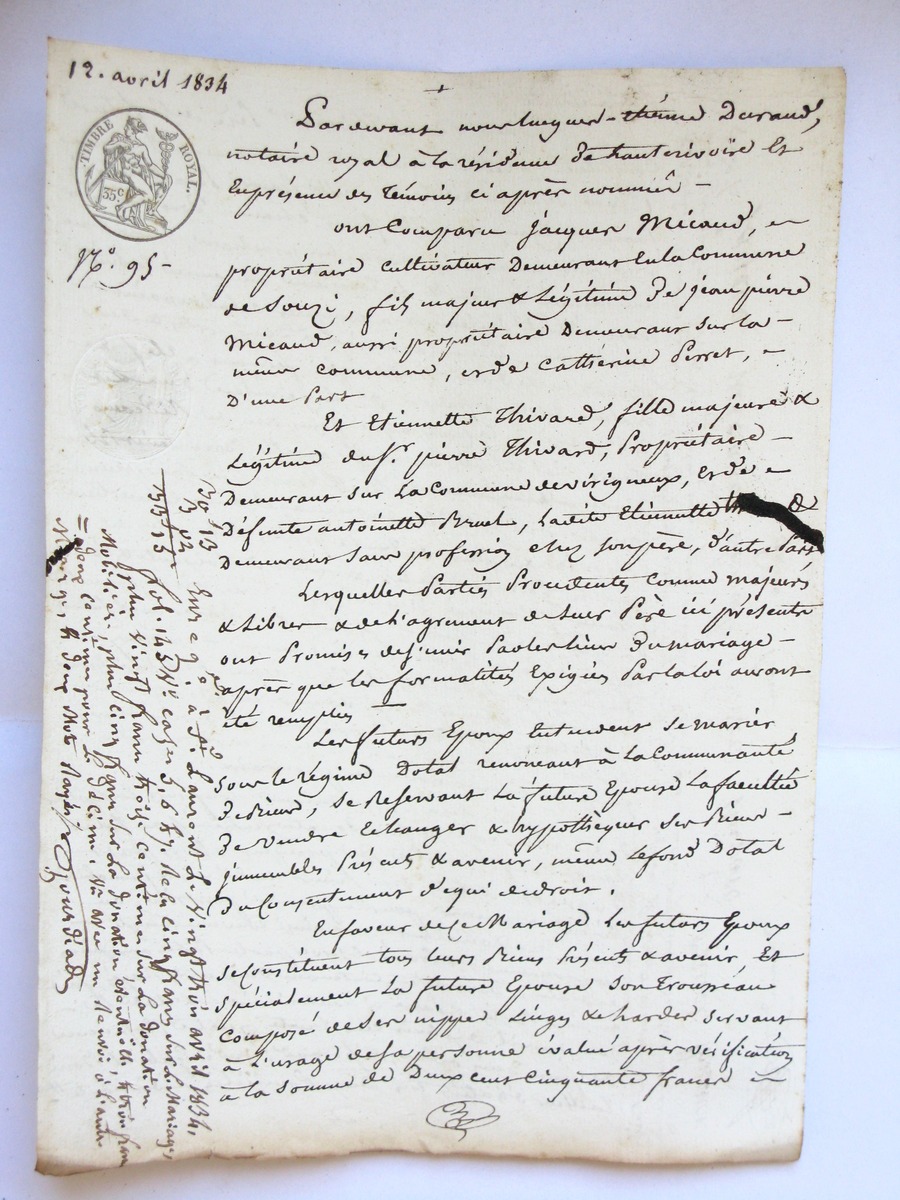 12. avril 1834
TIMBRE ROYAL.
35 c.
N.º 95 -
Pardevant nous Jacques-étienne Durand,
notaire royal à la résidence de hauterivoire Et
En présence des témoins ci après nommés -
ont Comparu Jacques Micaud,
propriétaire cultivateur Demeurant En la Commune
de Souzi, fils majeur & Légitime De jean pierre
Micaud, aussi propriétaire Demeurant sur la -
même commune, et de Cathérine Perret,
D'une Part
Et Etiennette Thivard, fille majeure &
Légitime du Sr. pierre Thivard, Propriétaire -
Demeurant sur La Commune de virigneux, et de
Défunte antoinette Bruel, Ladite Etiennette &
Demeurant sans profession chez son père, d'autre Part
Lesquelles Parties Procédentes comme majeurs
& Libres & de l'agrément de Leur Père ici présents
ont Promises de s'unir Par les liens Du mariage -
après que les formalités Exigées Par la loi auront
été remplies -
Les futurs Epoux Entendent se marier
sous le régime Dotal renonçant à la Communauté
De Biens, se Réservant La future Epouse La faculté
De vendre Echanger & hypothéquer ses Biens -
jmmeubles Présents & avenir, même Le fond Dotal
Du Consentement de qui de droit.
En faveur de Ce Mariage Les futurs Epoux
se Constituent tous leurs Biens Présents & avenir, Et
spécialement La future Epouse son Trousseau
Composé de ses nippes Linges & hardes servant
à L'usage de sa personne évalué après vérification
à la somme de Deux cent Cinquante francs
Enreg. à St. Laurent Le vingt trois avril 1834,
fol. 145 Vo. cases 5, 6 & 7. Reçu cinq francs sur Le Mariage,
plus vingt francs trois centimes sur La donation
Mobilière, plus cinq francs sur La donation éventuelle trois francs
deux centimes pour Le Décime,